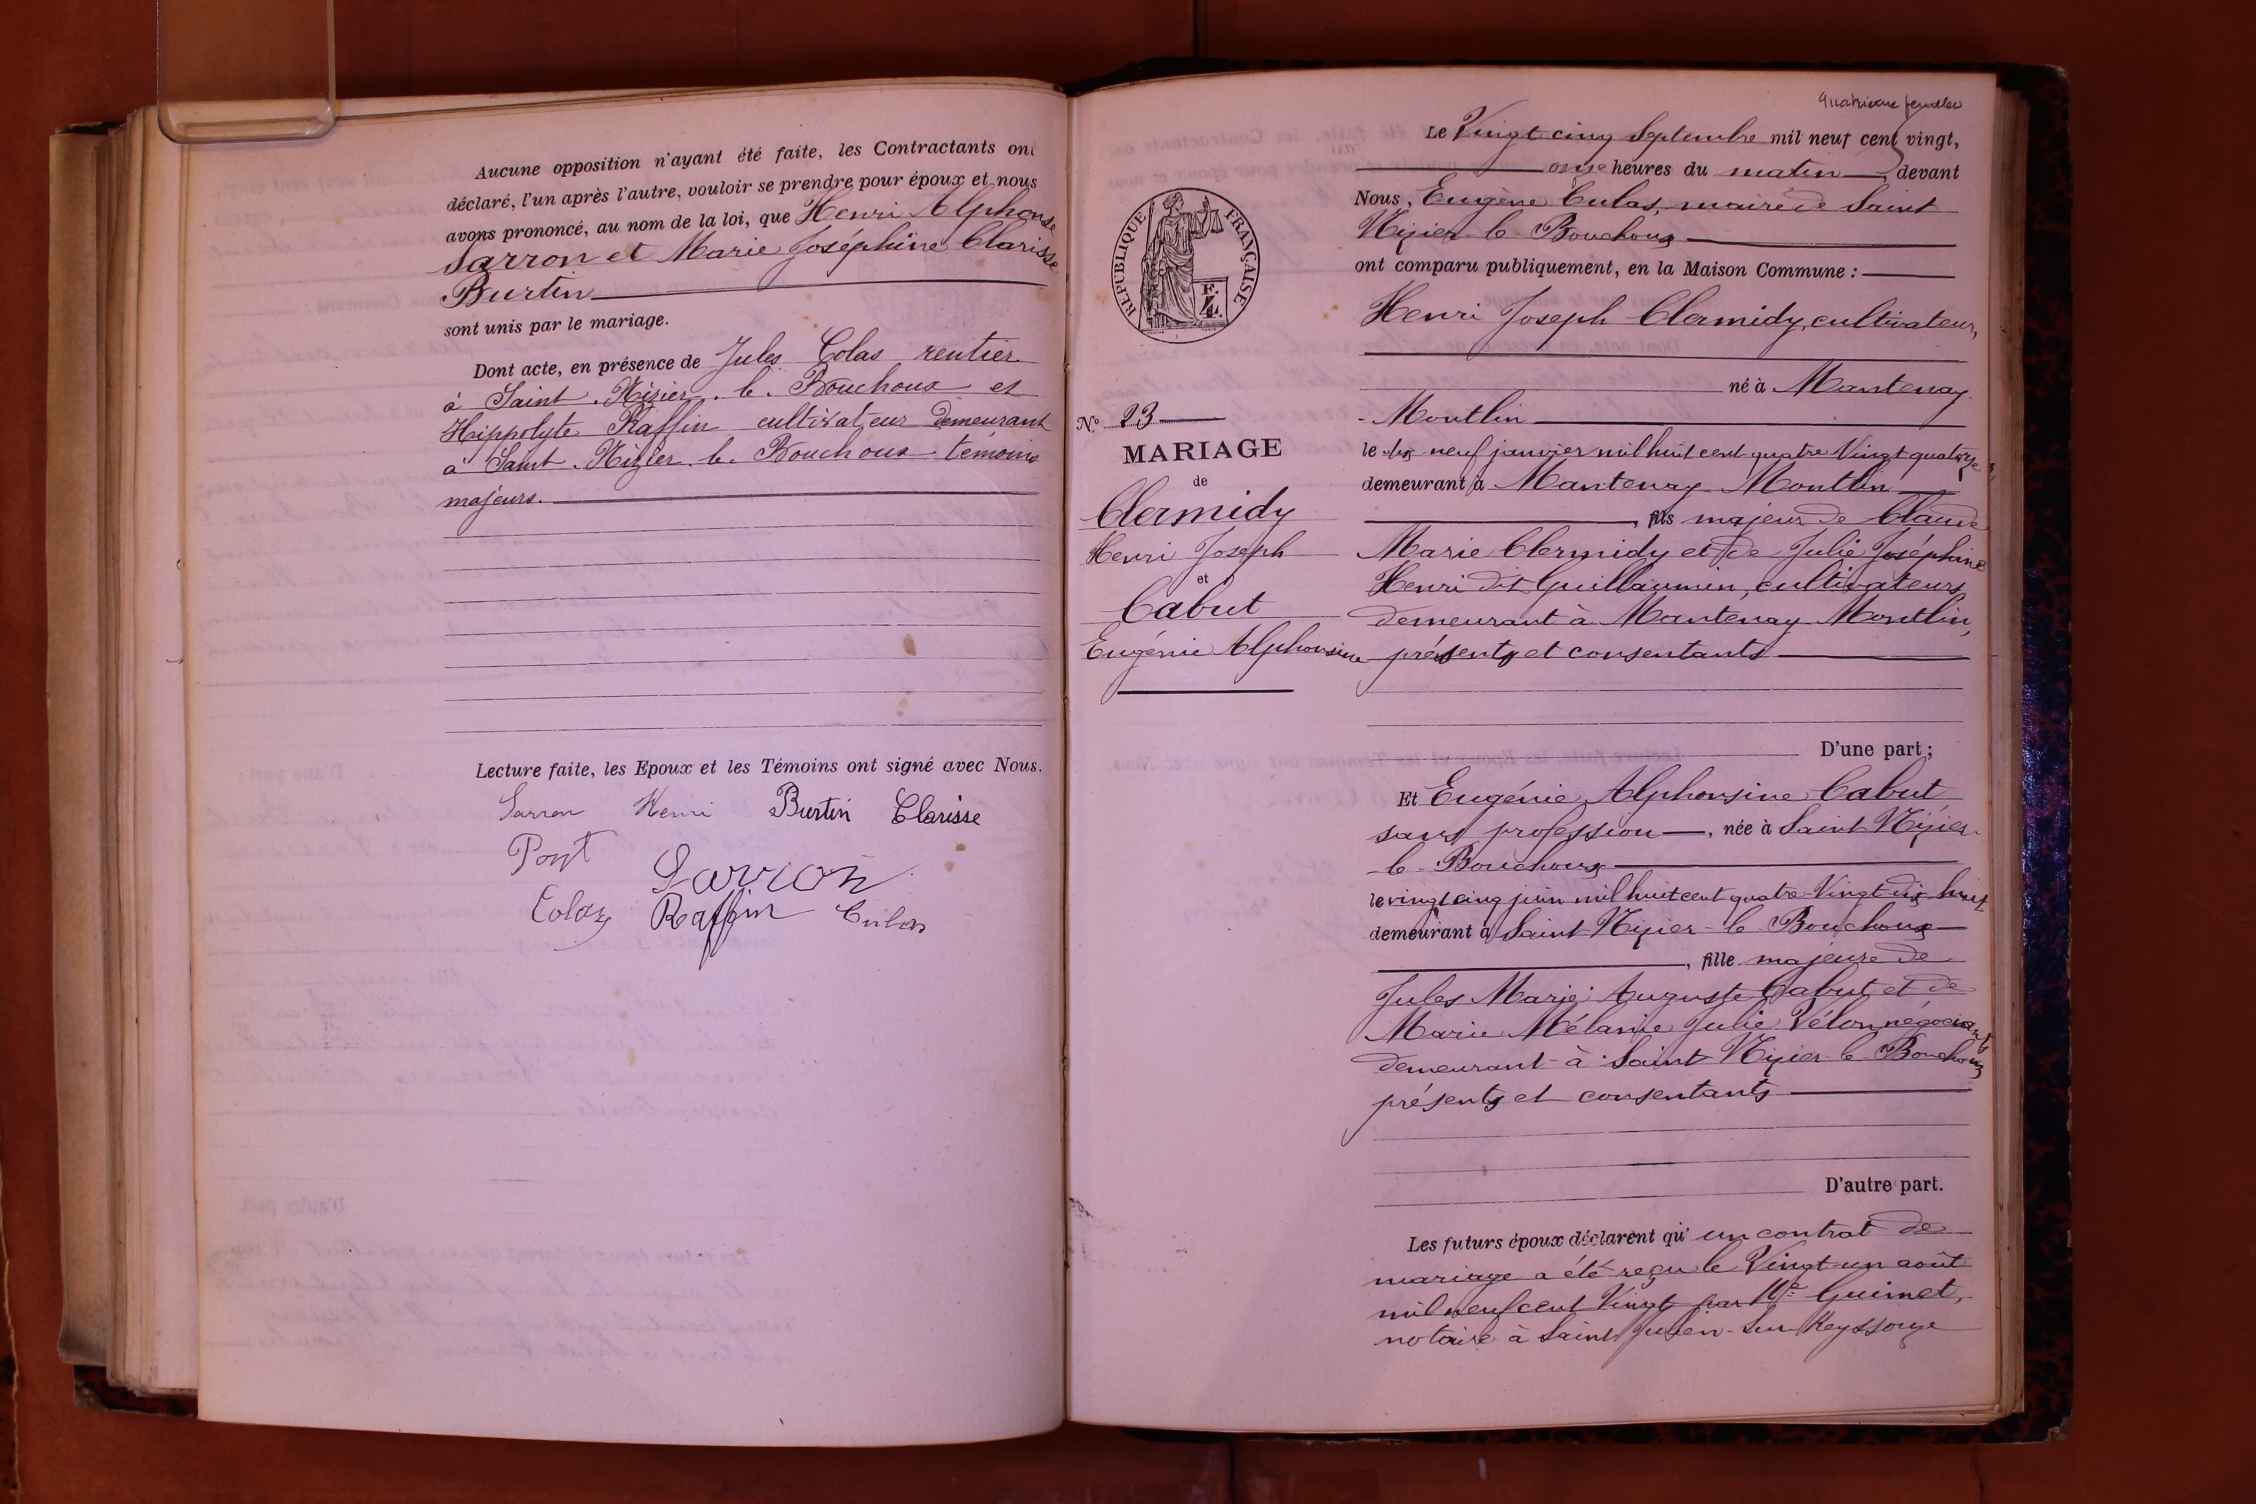 Aucune opposition n'ayant été faite, les Contractants ont
déclaré, l'un après l'autre, vouloir se prendre pour époux et nous
avons prononcé, au nom de la loi, que Henri Alphonse
Sarron et Marie Joséphine Clarisse
Burtin
sont unis par le mariage.
Dont acte, en présence de Jules Colas rentier
à Saint. Nizier. le. Bouchoux et
Hippolyte Raffin cultivateur demeurant
à Saint. Nizier. le. Bouchoux témoins
majeurs.
Lecture faite, les Epoux et les Témoins ont signé avec Nous.
Sarron Henri Burtin Clarisse
Sarron
Colas Raffin Culas
Quatrième feuillet
Le Vingt cinq Septembre mil neuf cent vingt,
onze heures du matin, devant
Nous, Eugène Culas, maire de Saint
Nizier le Bouchoux
ont comparu publiquement, en la Maison Commune :
Henri Joseph Clermidy, cultivateur,
né à Mantenay
Montlin
le neuf janvier mil huit cent quatre Vingt quatorze
demeurant à Mantenay Montlin
, fils majeur de Claude
Marie Clermidy et de Julie Joséphine
Henri dit Guillaumin, cultivateurs,
demeurant à Mantenay Montlin,
présents et consentants
RÉPUBLIQUE FRANÇAISE
F.
4
N.º 23
MARIAGE
de
Clermidy
Henri Joseph
et
Cabut
Eugénie Alphonsine
D'une part ;
Et Eugénie Alphonsine Cabut
sans profession, née à Saint Nizier
le Bouchoux
le vingt cinq juin mil huit cent quatre-Vingt dix huit
demeurant à Saint Nizier-le Bouchoux
, fille majeure de
Jules Marie Auguste Cabut et de
Marie Mélanie Julie Vélon, négociants
demeurant à Saint Nizier le Bouchoux
présents et consentants
D'autre part.
Les futurs époux déclarent qu'un contrat de
mariage a été reçu le Vingt un août
mil neuf cent Vingt par Me Guimet,
notaire à Saint Julien-sur Reyssouze